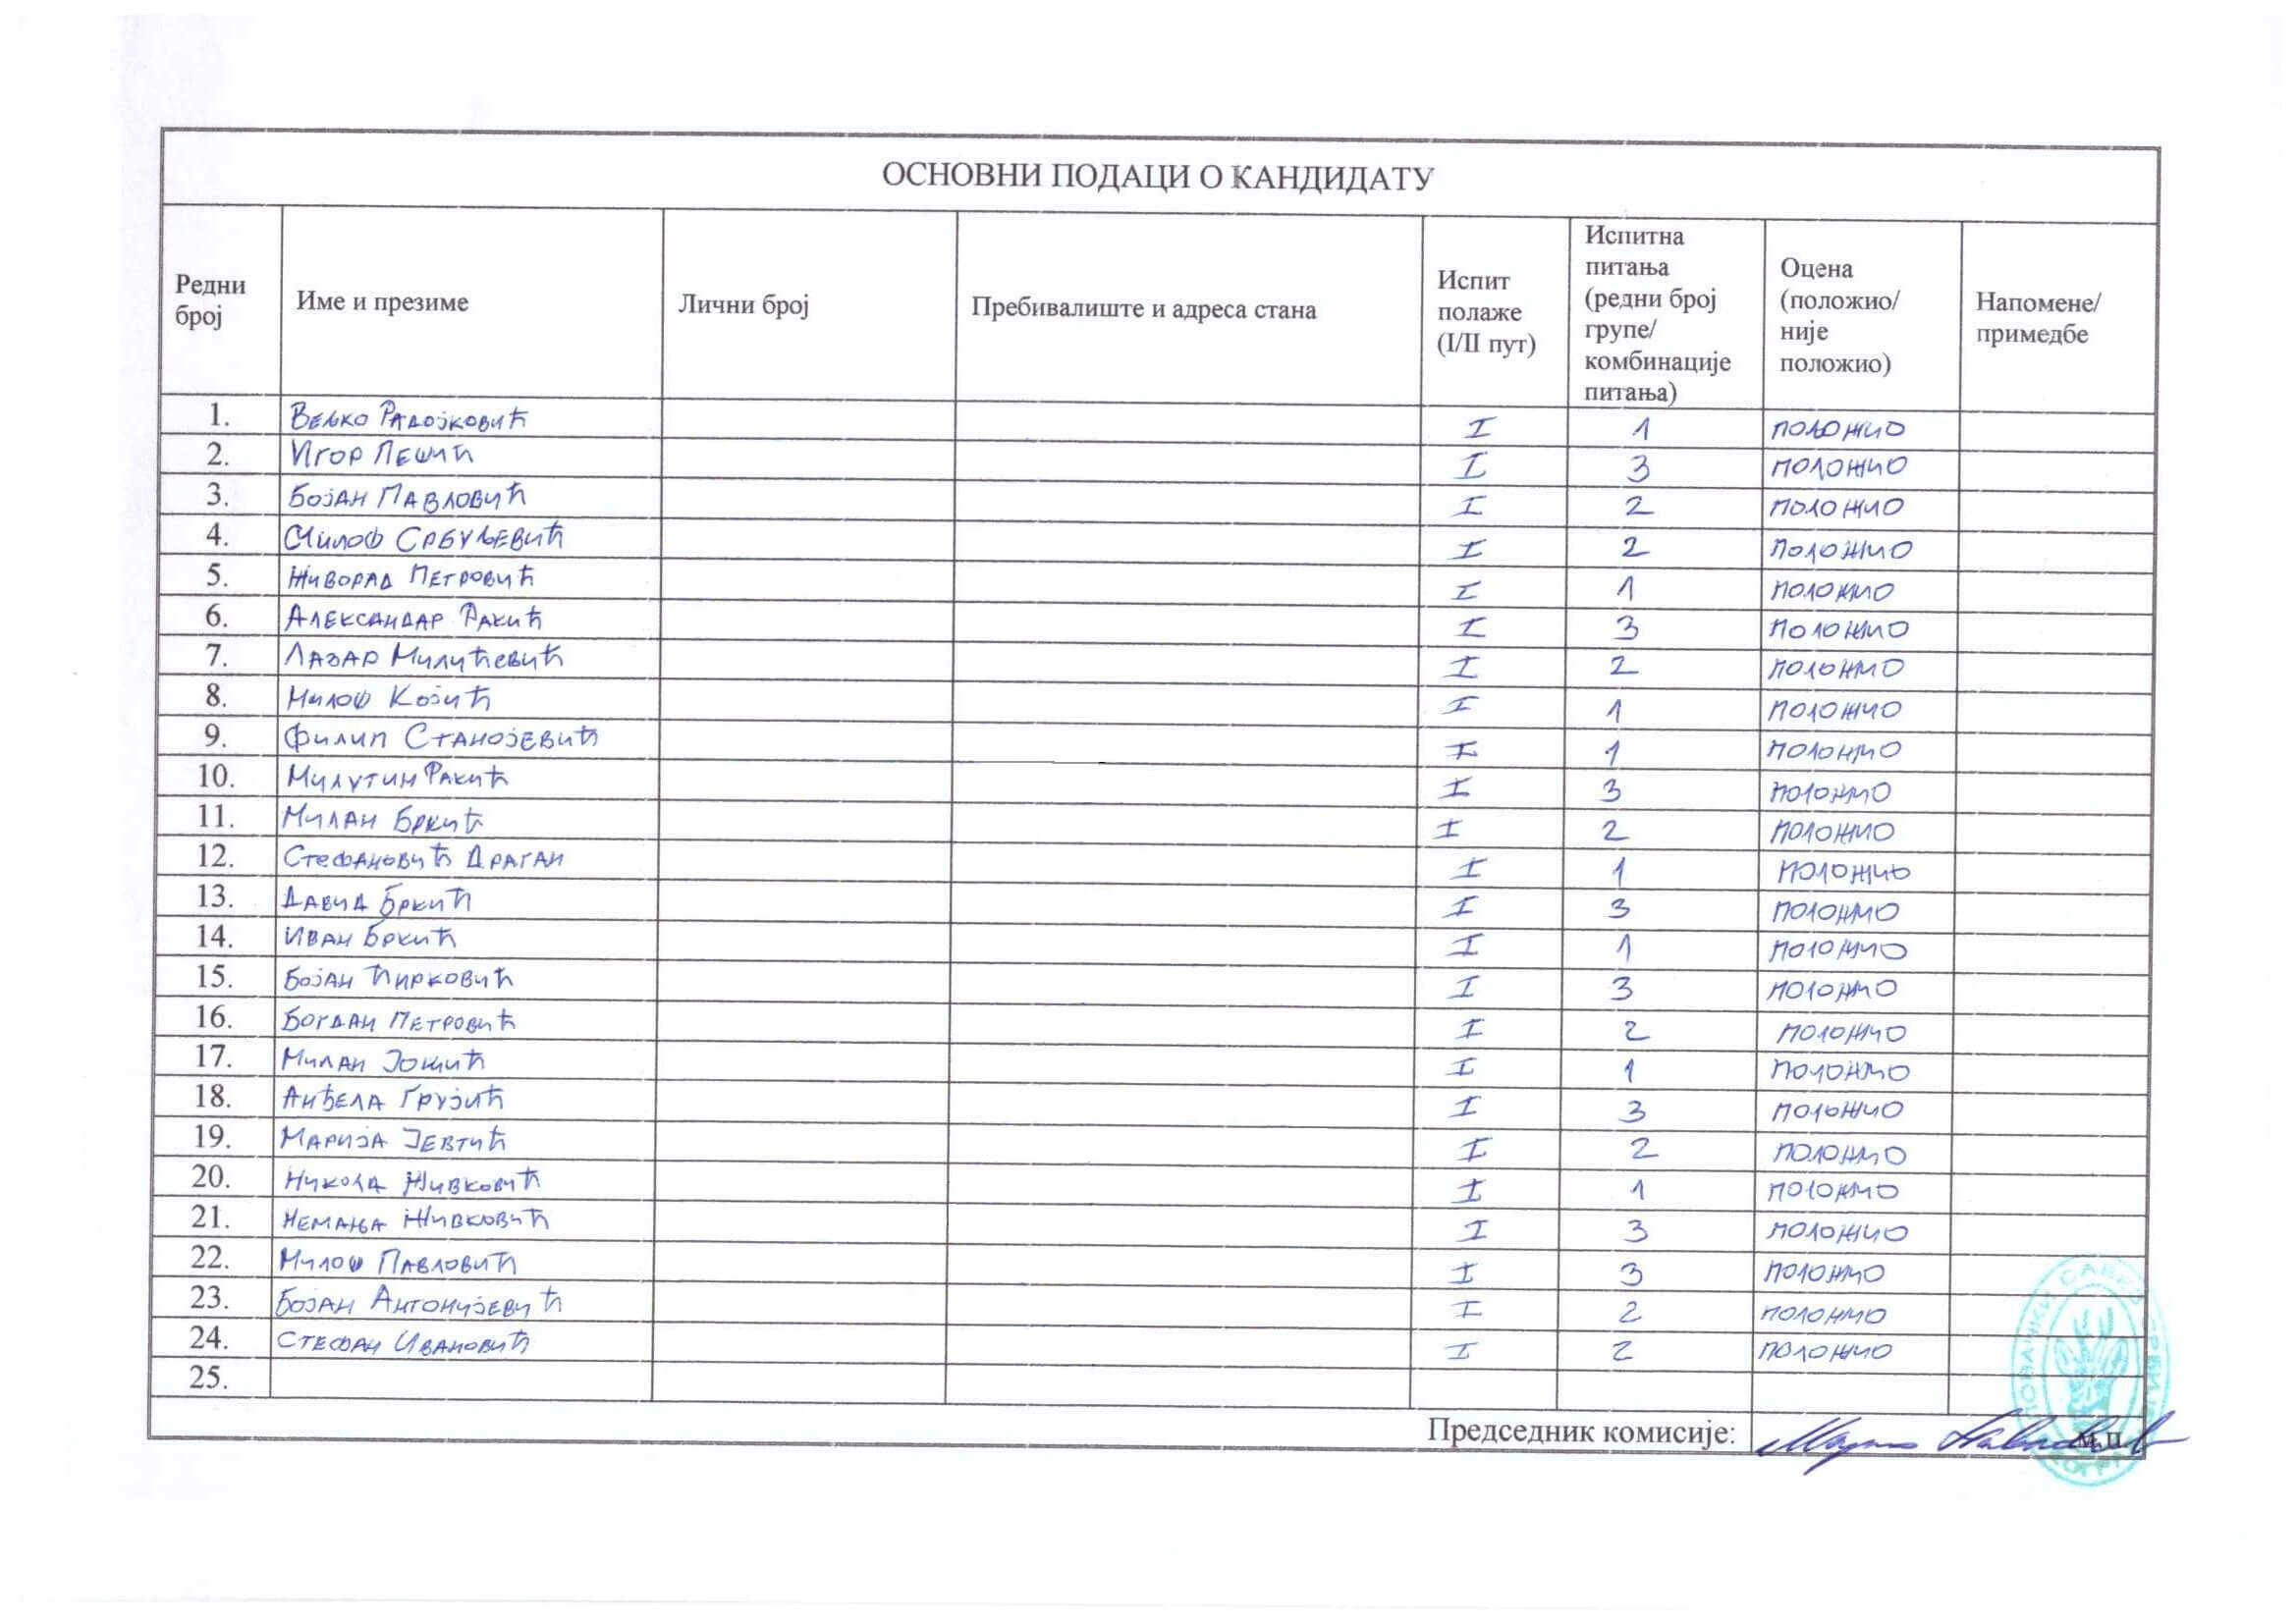 ОСНОВНИ ПОДАЦИ О КАНДИДАТУ
Редни број Име и презиме Лични број Пребивалиште и адреса стана Испит полаже (I/II пут) Испитна питања (редни број групе/ комбинације питања) Оцена (положио/ није положио) Напомене/ примедбе
1. Вељко Радојковић I 1 положио
2. Игор Пешић I 3 положио
3. Бојан Павловић I 2 положио
4. Милош Србуљевић I 2 положио
5. Живорад Петровић I 1 положио
6. Александар Ракић I 3 положио
7. Лазар Милућевић I 2 положио
8. Милош Којић I 1 положио
9. Филип Станојевић I 1 положио
10. Милутин Ракић I 3 положио
11. Милан Бркић I 2 положио
12. Стефановић Драган I 1 положио
13. Давид Бркић I 3 положио
14. Иван Бркић I 1 положио
15. Бојан Ћирковић I 3 положио
16. Богдан Петровић I 2 положио
17. Милан Јошић I 1 положио
18. Анђела Грујић I 3 положио
19. Марија Јевтић I 2 положио
20. Никола Живковић I 1 положио
21. Немања Живковић I 3 положио
22. Милош Павловић I 3 положио
23. Бојан Антонијевић I 2 положио
24. Стефан Ивановић I 2 положио
25.
Председник комисије: М.П.
ЛОВАЧКИ САВЕЗ СРБИЈЕ